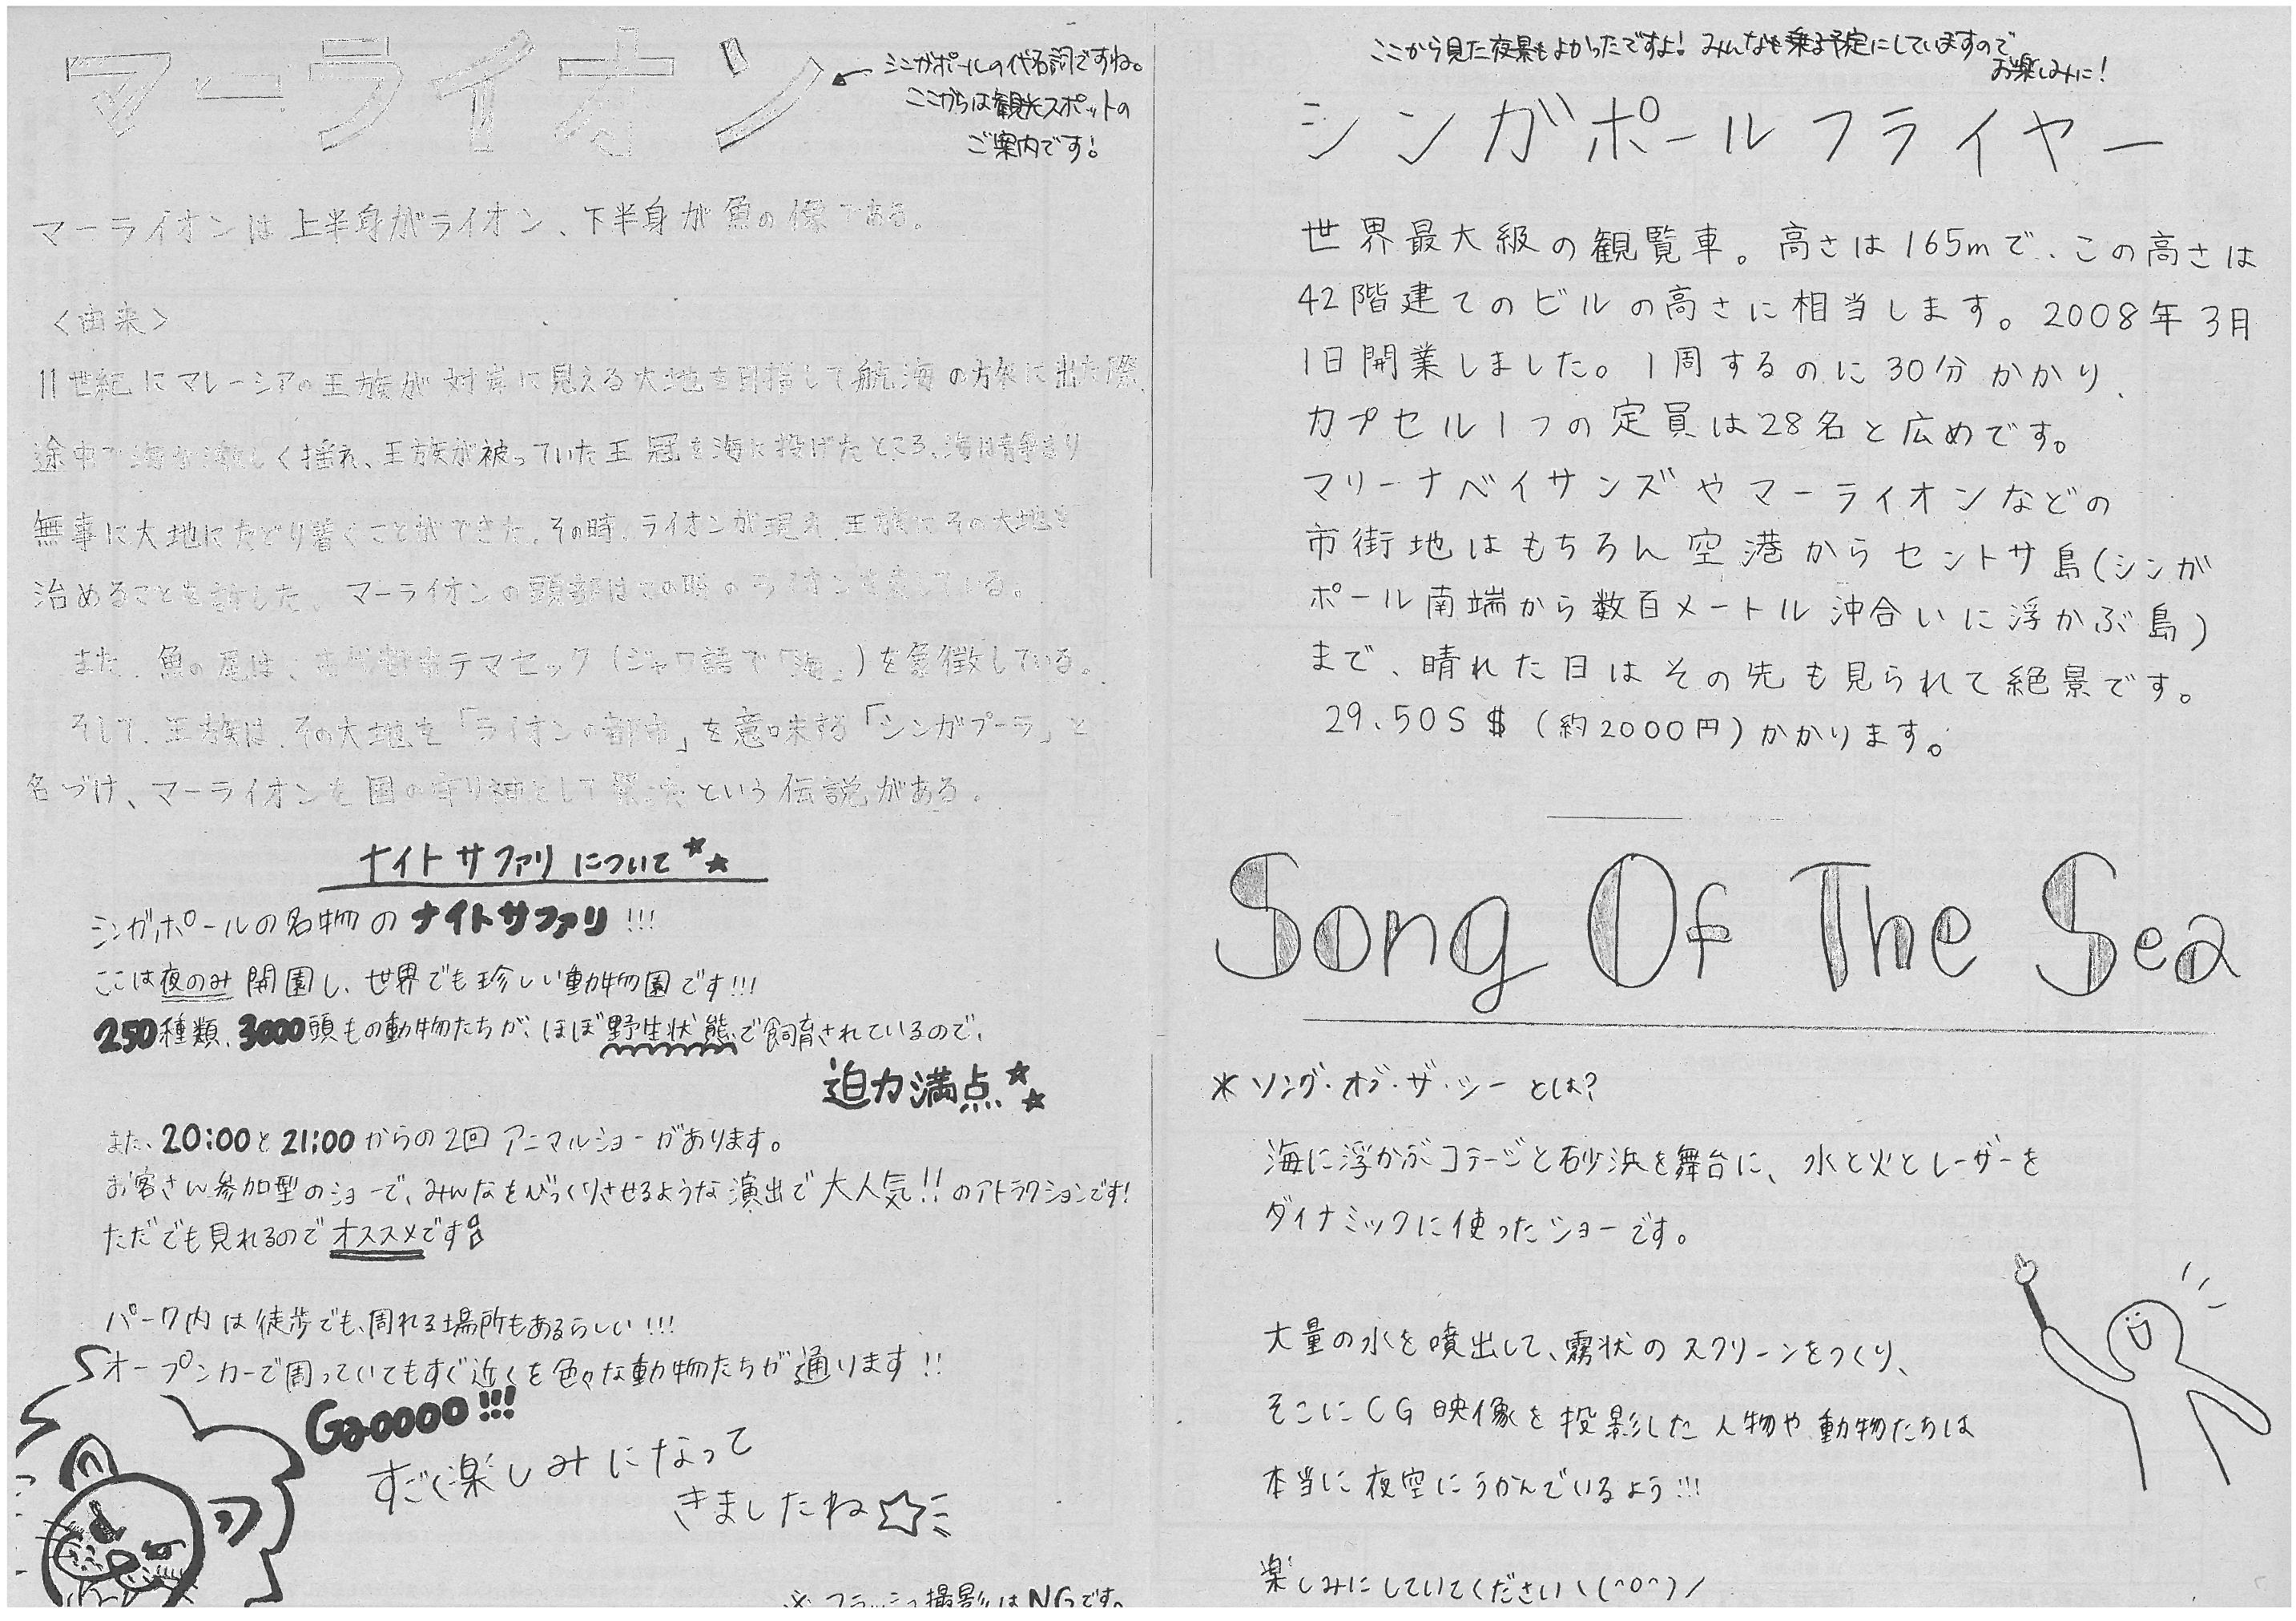 マーライオン
シンガポールの代名詞ですね。
ここからは観光スポットの
ご案内です!
マーライオンは上半身がライオン、下半身が魚の像である。
〈由来〉
11世紀にマレーシアの王族が対岸に見える大地を目指して航海の旅に出た際、
途中で海が激しく揺れ、王族が被っていた王冠を海に投げたところ、海は静まり
無事に大地にたどり着くことができた。その時、ライオンが現れ、王族にその大地を
治めることを許した。マーライオンの頭部はこの時のライオンを表している。
また、魚の尾は、古代都市テマセック(ジャワ語で「海」)を象徴している。
そして、王族は、その大地を「ライオンの都市」を意味する「シンガプーラ」と
名づけ、マーライオンを国の守り神として祭ったという伝説がある。
ナイトサファリについて★★
シンガポールの名物のナイトサファリ!!!
ここは夜のみ開園し、世界でも珍しい動物園です!!!
250種類、3000頭もの動物たちが、ほぼ野生状態で飼育されているので、
迫力満点★★
また、20:00と21:00からの2回アニマルショーがあります。
お客さん参加型のショーで、みんなをびっくりさせるような演出で大人気!!のアトラクションです!
ただでも見れるのでオススメです!
パーク内は徒歩でも、周れる場所もあるらしい!!!
オープンカーで周っていてもすぐ近くを色々な動物たちが通ります!!
Gaoooo!!!
すごく楽しみになって
きましたね☆
※フラッシュ撮影はNGです。
ここから見た夜景もよかったですよ! みんなも乗る予定にしていますので
お楽しみに!
シンガポールフライヤー
世界最大級の観覧車。高さは165mで、この高さは
42階建てのビルの高さに相当します。2008年3月
1日開業しました。1周するのに30分かかり、
カプセル1つの定員は28名と広めです。
マリーナベイサンズやマーライオンなどの
市街地はもちろん空港からセントサ島(シンガ
ポール南端から数百メートル沖合いに浮かぶ島)
まで、晴れた日はその先も見られて絶景です。
29.50S$(約2000円)かかります。
Song Of The Sea
*ソング・オブ・ザ・シーとは?
海に浮かぶコテージと砂浜を舞台に、水と火とレーザーを
ダイナミックに使ったショーです。
大量の水を噴出して、霧状のスクリーンをつくり、
そこにCG映像を投影した人物や動物たちは
本当に夜空にうかんでいるよう!!!
楽しみにしていてください\(^o^)/